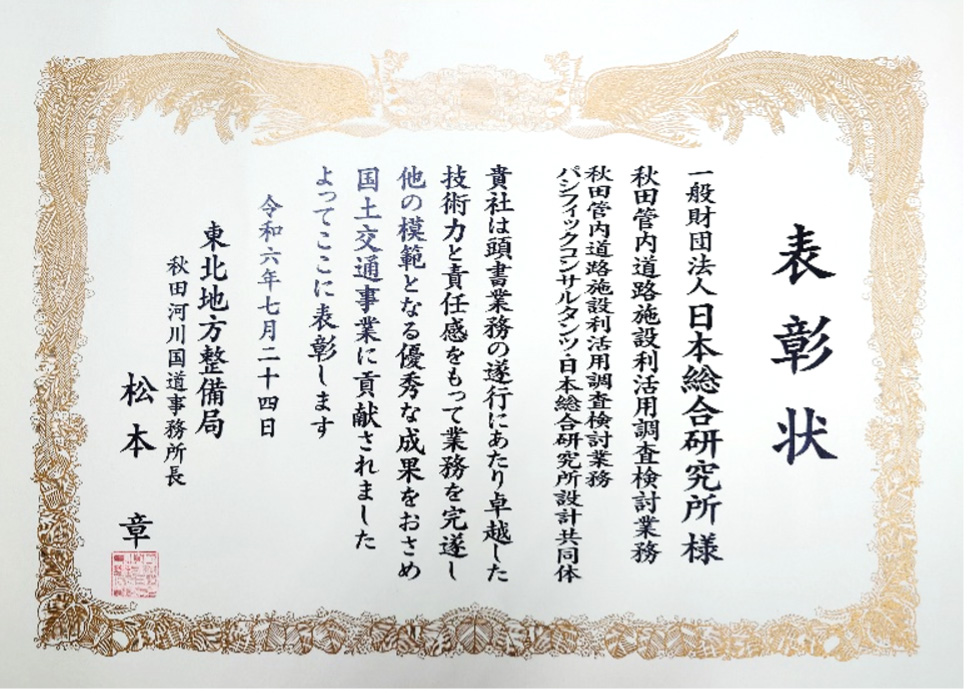 表彰状
一般財団法人日本総合研究所様
秋田管内道路施設利活用調査検討業務
秋田管内道路施設利活用調査検討業務
パシフィックコンサルタンツ・日本総合研究所設計共同体
貴社は頭書業務の遂行にあたり卓越した
技術力と責任感をもって業務を完遂し
他の模範となる優秀な成果をおさめ
国土交通事業に貢献されました
よってここに表彰します
令和六年七月二十四日
東北地方整備局
秋田河川国道事務所長
松本 章